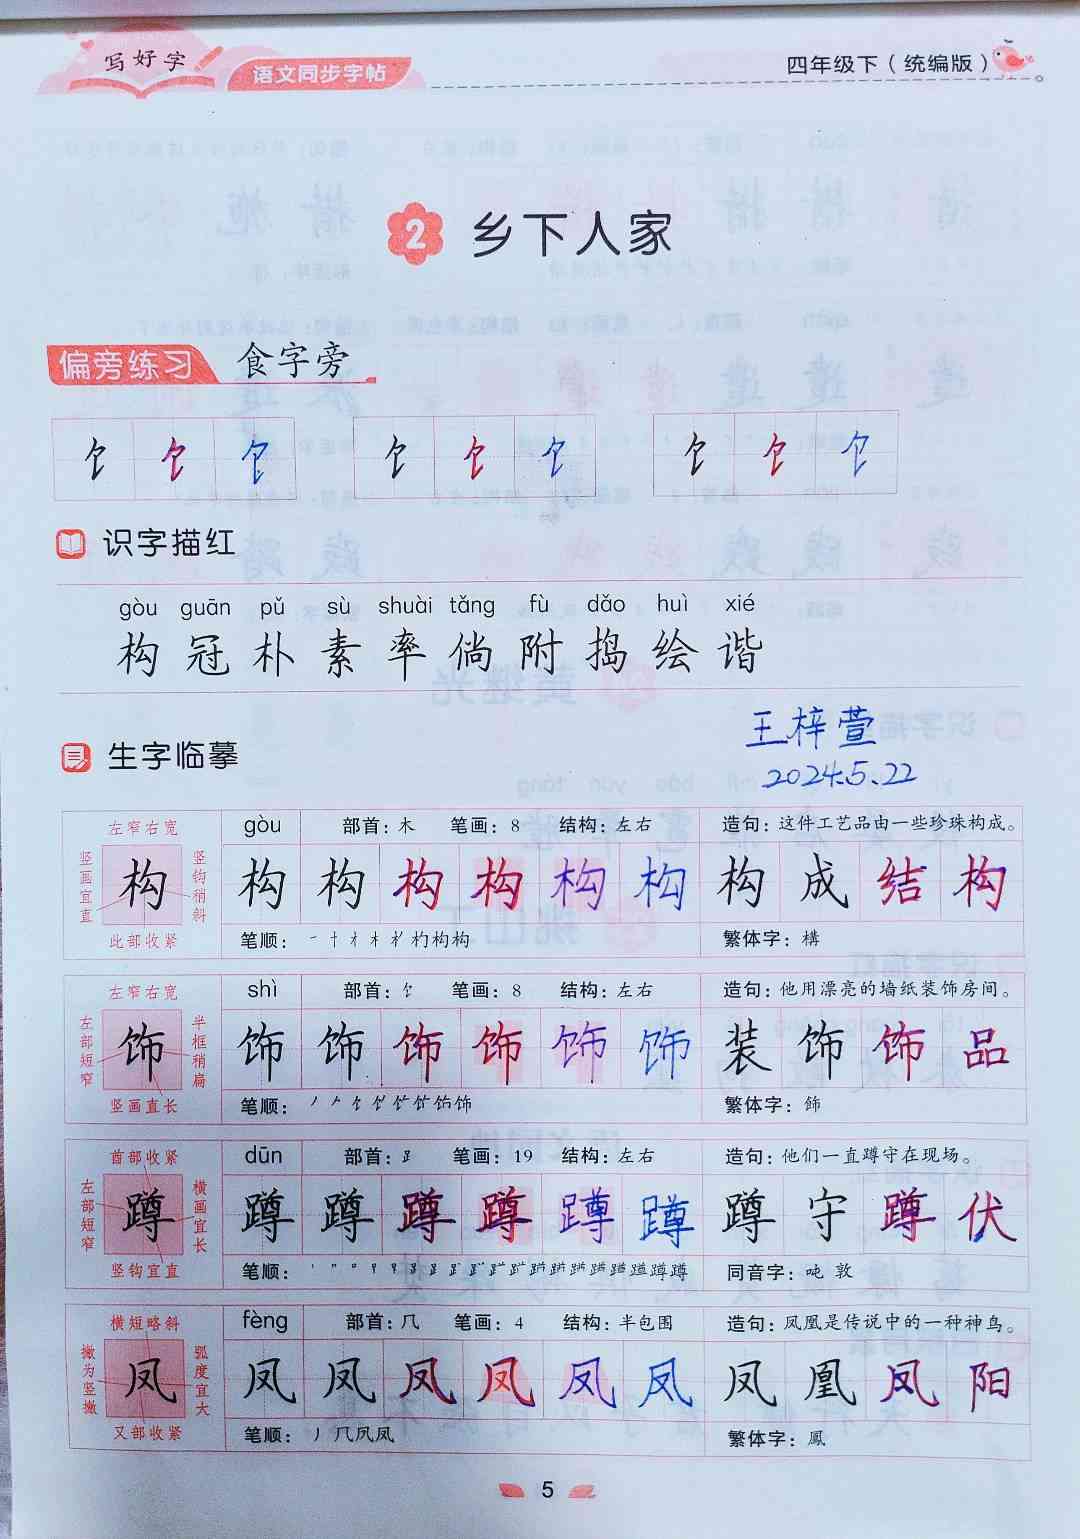 写好字
语文同步字帖
四年级下（统编版）
2 乡下人家
偏旁练习 食字旁
饣 饣 饣 饣 饣 饣 饣 饣 饣
识字描红
gòu guān pǔ sù shuài tǎng fù dǎo huì xié
构 冠 朴 素 率 倘 附 捣 绘 谐
王梓萱
2024.5.22
生字临摹
左窄右宽 gòu 部首：木 笔画：8 结构：左右 造句：这件工艺品由一些珍珠构成。
竖画宜直 构 竖钩稍斜 构 构 构 构 构 构 构 成 结 构
此部收紧 笔顺： 一 十 才 木 朩 杓构构 繁体字：構
左窄右宽 shì 部首：饣 笔画：8 结构：左右 造句：他用漂亮的墙纸装饰房间。
左部短窄 饰 半框稍扁 饰 饰 饰 饰 饰 饰 装 饰 饰 品
竖画直长 笔顺： 繁体字：飾
首部收紧 dūn 部首：⻊ 笔画：19 结构：左右 造句：他们一直蹲守在现场。
左部短窄 蹲 横画宜长 蹲 蹲 蹲 蹲 蹲 蹲 蹲 守 蹲 伏
竖钩宜直 笔顺： 同音字：吨 敦
横短略斜 fèng 部首：几 笔画：4 结构：半包围 造句：凤凰是传说中的一种神鸟。
撇为竖撇 凤 弧度宜大 凤 凤 凤 凤 凤 凤 凤 凰 凤 阳
又部收紧 笔顺：丿 几凤凤 繁体字：鳳
5